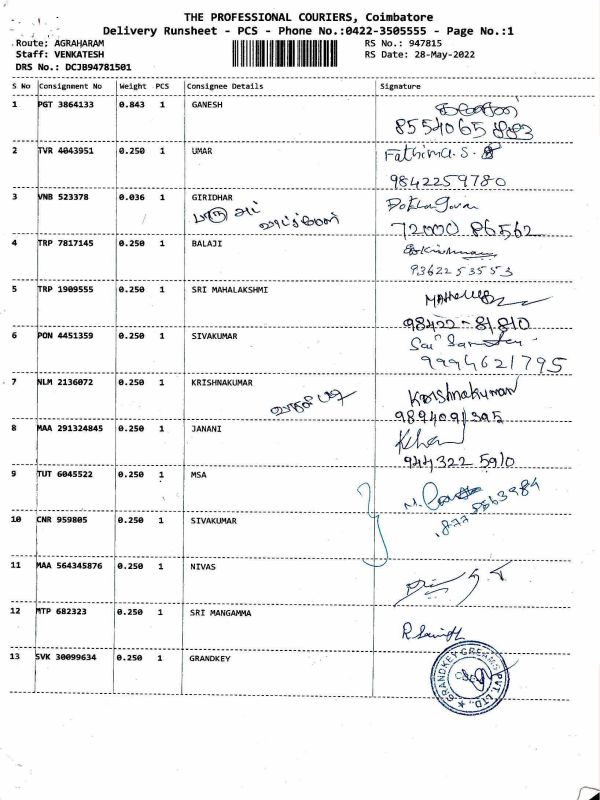 THE PROFESSIONAL COURIERS, Coimbatore
Delivery Runsheet - PCS - Phone No.:0422-3505555 - Page No.:1
Route: AGRAHARAM RS No.: 947815
Staff: VENKATESH RS Date: 28-May-2022
DRS No.: DCJB94781501
S No Consignment No Weight PCS Consignee Details Signature
1 PGT 3864133 0.843 1 GANESH
8554065883
2 TVR 4043951 0.250 1 UMAR Fathima.S.
9842259780
3 VNB 523378 0.036 1 GIRIDHAR
72000 86562
4 TRP 7817145 0.250 1 BALAJI
9362253553
5 TRP 1909555 0.250 1 SRI MAHALAKSHMI
98422-81810
6 PON 4451359 0.250 1 SIVAKUMAR Sai
9994621795
7 NLM 2136072 0.250 1 KRISHNAKUMAR Krishnakumar
9894091395
8 MAA 291324845 0.250 1 JANANI
944322 5910
9 TUT 6045522 0.250 1 MSA
10 CNR 959805 0.250 1 SIVAKUMAR
11 MAA 564345876 0.250 1 NIVAS
12 MTP 682323 0.250 1 SRI MANGAMMA
13 SVK 30099634 0.250 1 GRANDKEY